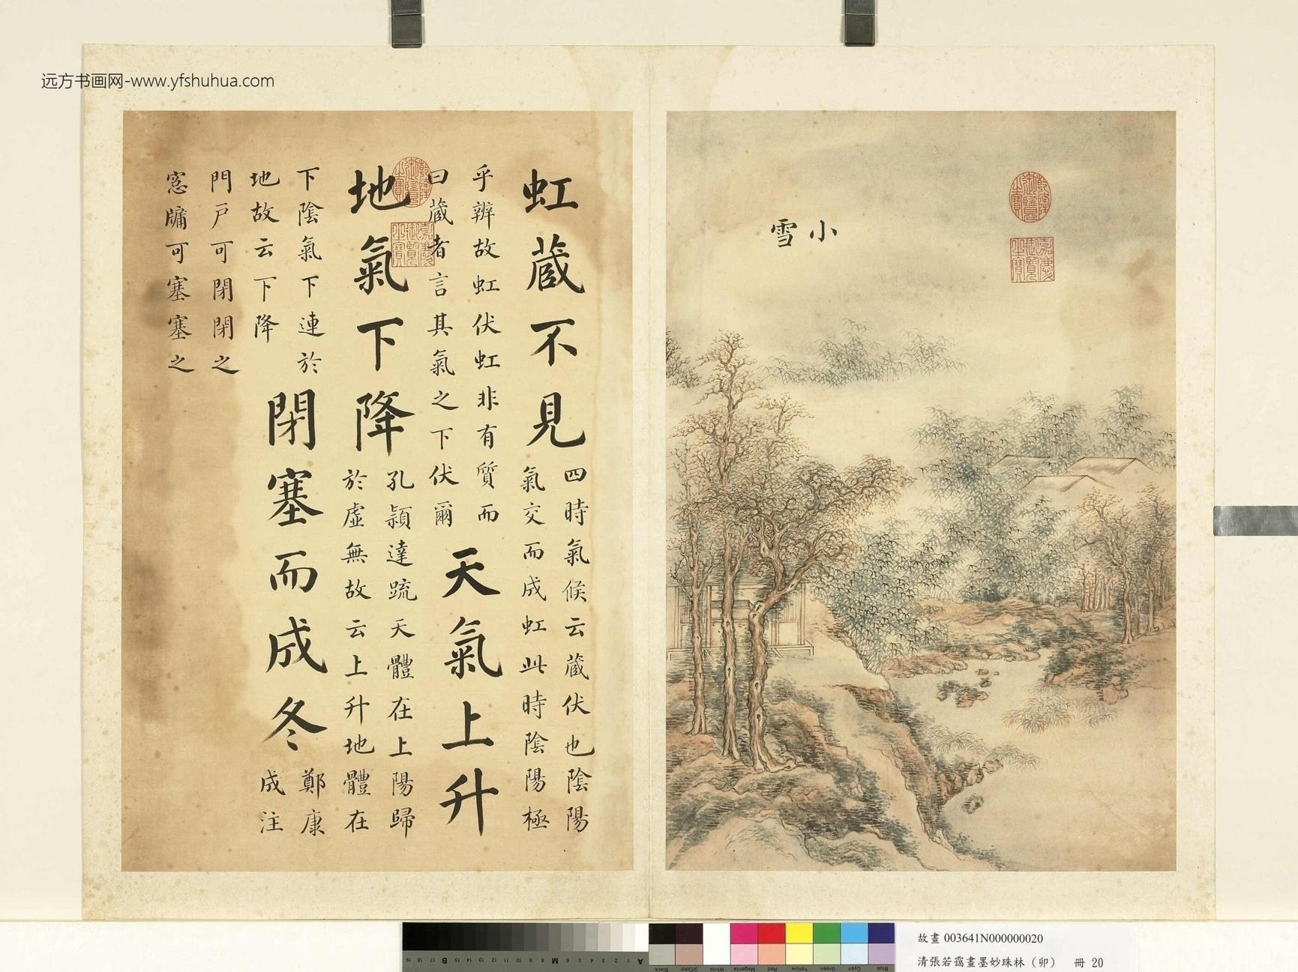 远方书画网-www.yfshuhua.com
乾隆御覽之寶
嘉慶御覽之寶
小雪
虹蔵不見
四時氣候云蔵伏也陰陽
氣交而成虹此時陰陽極
乎辨故虹伏虹非有質而
曰蔵者言其氣之下伏爾
天氣上升
地氣下降
孔穎達疏天體在上陽歸
於虛無故云上升地體在
下陰氣下連於
地故云下降
閉塞而成冬
鄭康
成注
門戸可閉閉之
窓牖可塞塞之
乾隆御覽之寶
嘉慶御覽之寶
故畫 003641N000000020
清張若靄畫墨妙珠林（卯） 冊 20